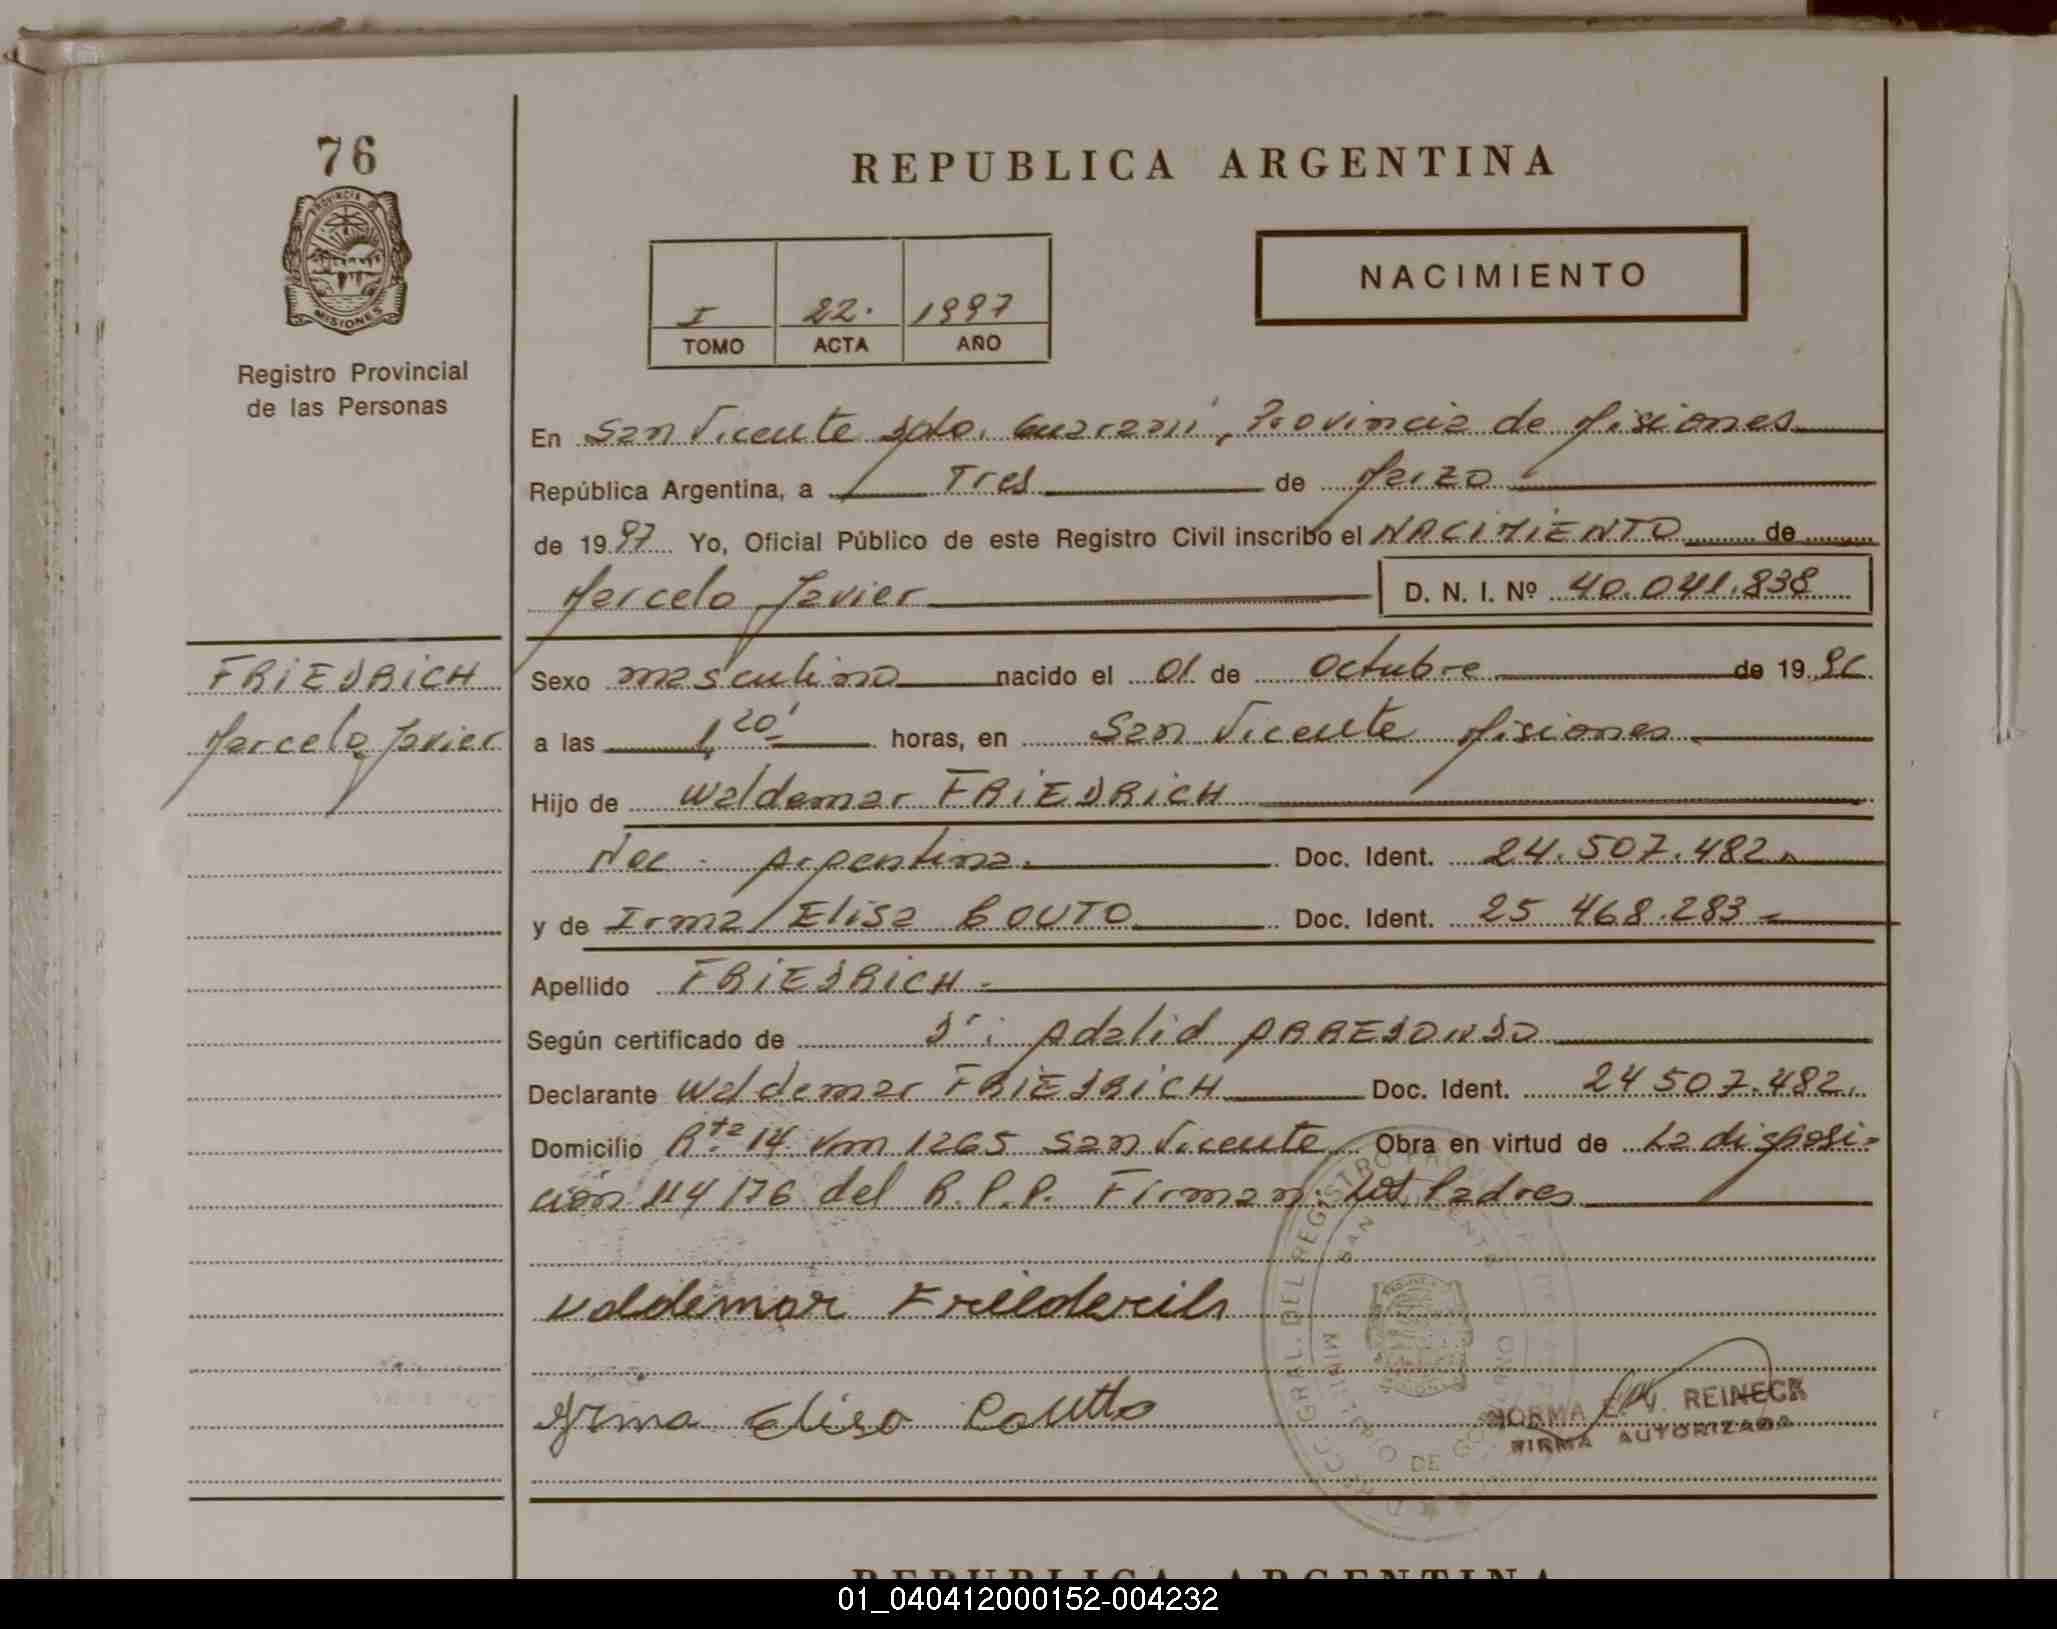 76
PROVINCIA DE
MISIONES
Registro Provincial
de las Personas
FRIEDRICH
Marcelo Javier
REPUBLICA ARGENTINA
I 22. 1997
TOMO ACTA AÑO
NACIMIENTO
En San Vicente Dpto. Guaraní, Provincia de Misiones
República Argentina, a Tres de Marzo
de 1997 Yo, Oficial Público de este Registro Civil inscribo el NACIMIENTO de
Marcelo Javier D. N. I. Nº 40.041.838
Sexo masculino nacido el 01 de Octubre de 1996
a las 1,20' horas, en San Vicente Misiones
Hijo de Waldemar FRIEDRICH
Nac. Argentina. Doc. Ident. 24.507.482
y de Irma Elisa COUTO Doc. Ident. 25 468.283
Apellido FRIEDRICH
Según certificado de Dr: Adalid ARREDONDO
Declarante Waldemar FRIEDRICH Doc. Ident. 24 507.482.
Domicilio Rta 14 Km 1265 San Vicente Obra en virtud de La disposi-
ción 114/76 del R.P.P. Firman: los Padres
Valdemar Friederich
Irma Elisa Coutto
NORMA REINECK
FIRMA AUTORIZADA
SAN VICENTE
MINISTERIO DE GOBIERNO
REPUBLICA ARGENTINA
01_040412000152-004232